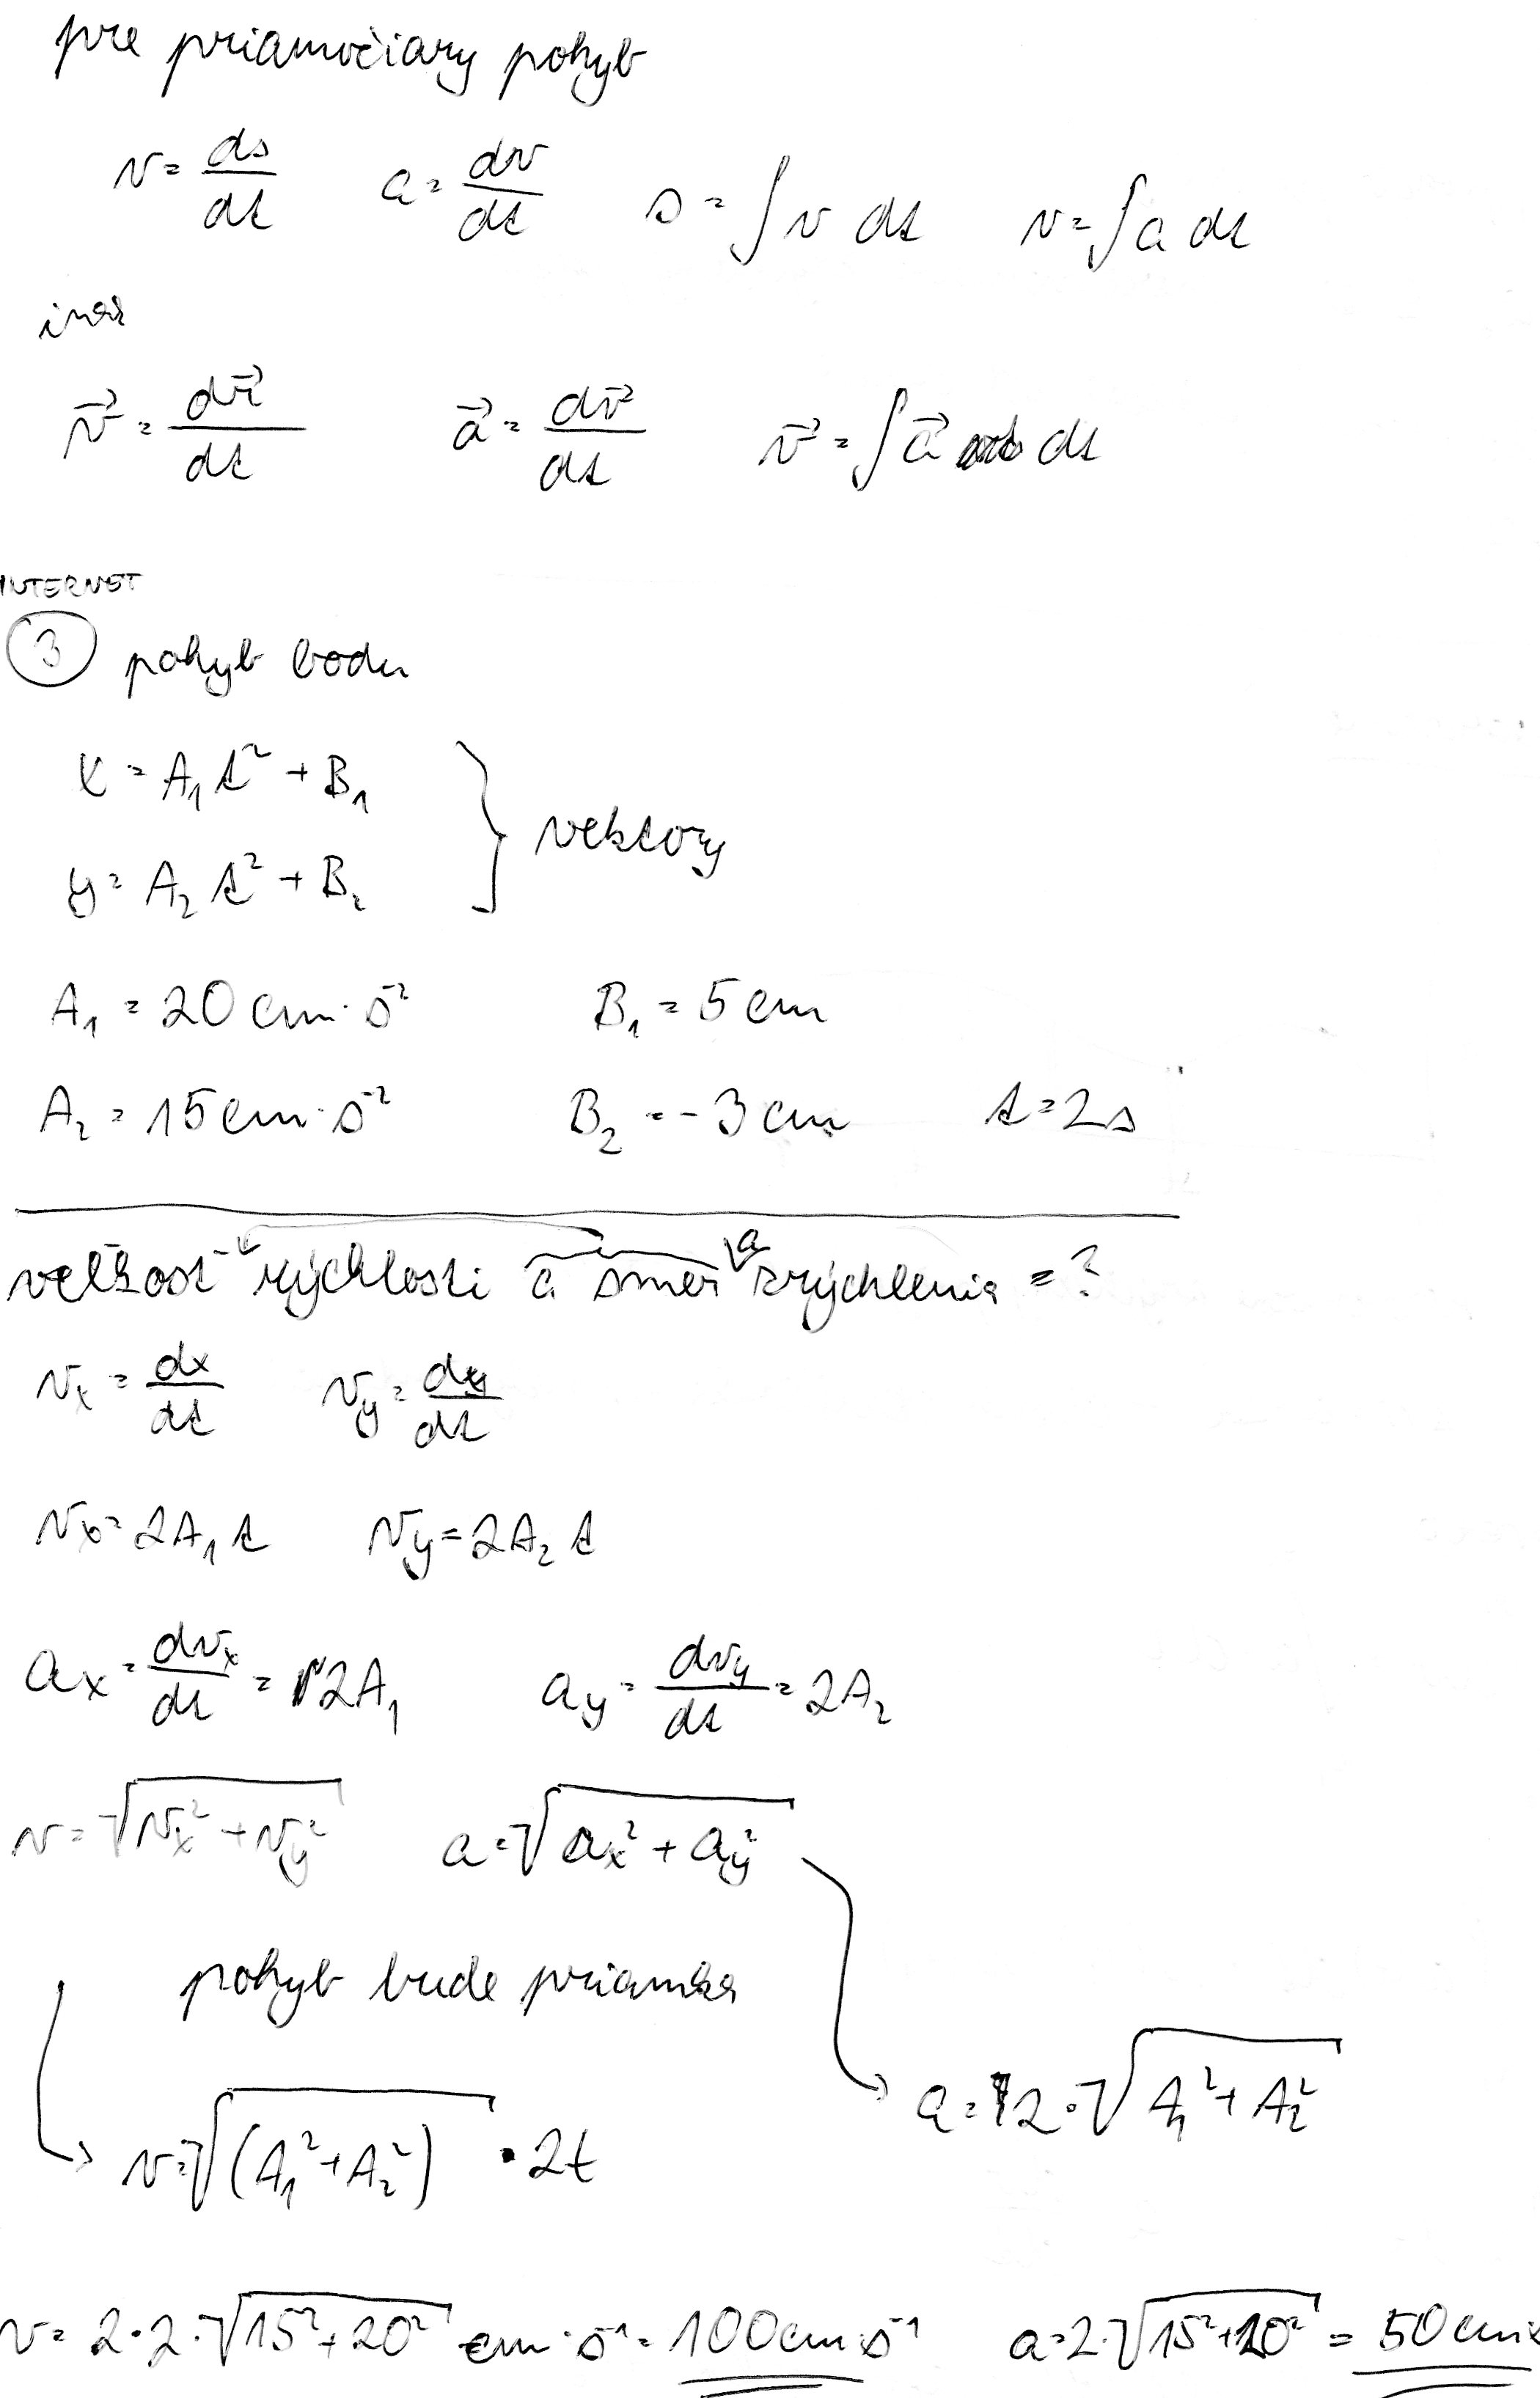 pre priamočiary pohyb
v = ds/dt a = dv/dt s = ∫ v dt v = ∫ a dt
inak
v⃗ = dr⃗/dt a⃗ = dv⃗/dt v⃗ = ∫ a⃗ dt
INTERNET
3 pohyb bodu
x = A₁t² + B₁
y = A₂t² + B₂ } vektory
A₁ = 20 cm·s⁻² B₁ = 5 cm
A₂ = 15 cm·s⁻² B₂ = -3 cm t = 2s
veľkosť rýchlosti a smer a zrýchlenia = ?
vₓ = dx/dt v_y = dy/dt
vₓ = 2A₁t v_y = 2A₂t
aₓ = dvₓ/dt = 2A₁ a_y = dv_y/dt = 2A₂
v = √(vₓ² + v_y²) a = √(aₓ² + a_y²)
pohyb bude priamka
a = 2·√(A₁² + A₂²)
v = √((A₁² + A₂²)) · 2t
v = 2·2·√(15² + 20²) cm·s⁻¹ = 100 cm·s⁻¹ a = 2·√(15² + 20²) = 50 cm